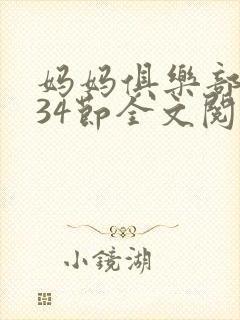 妈妈俱樂部
34節全文閱
小鏡湖